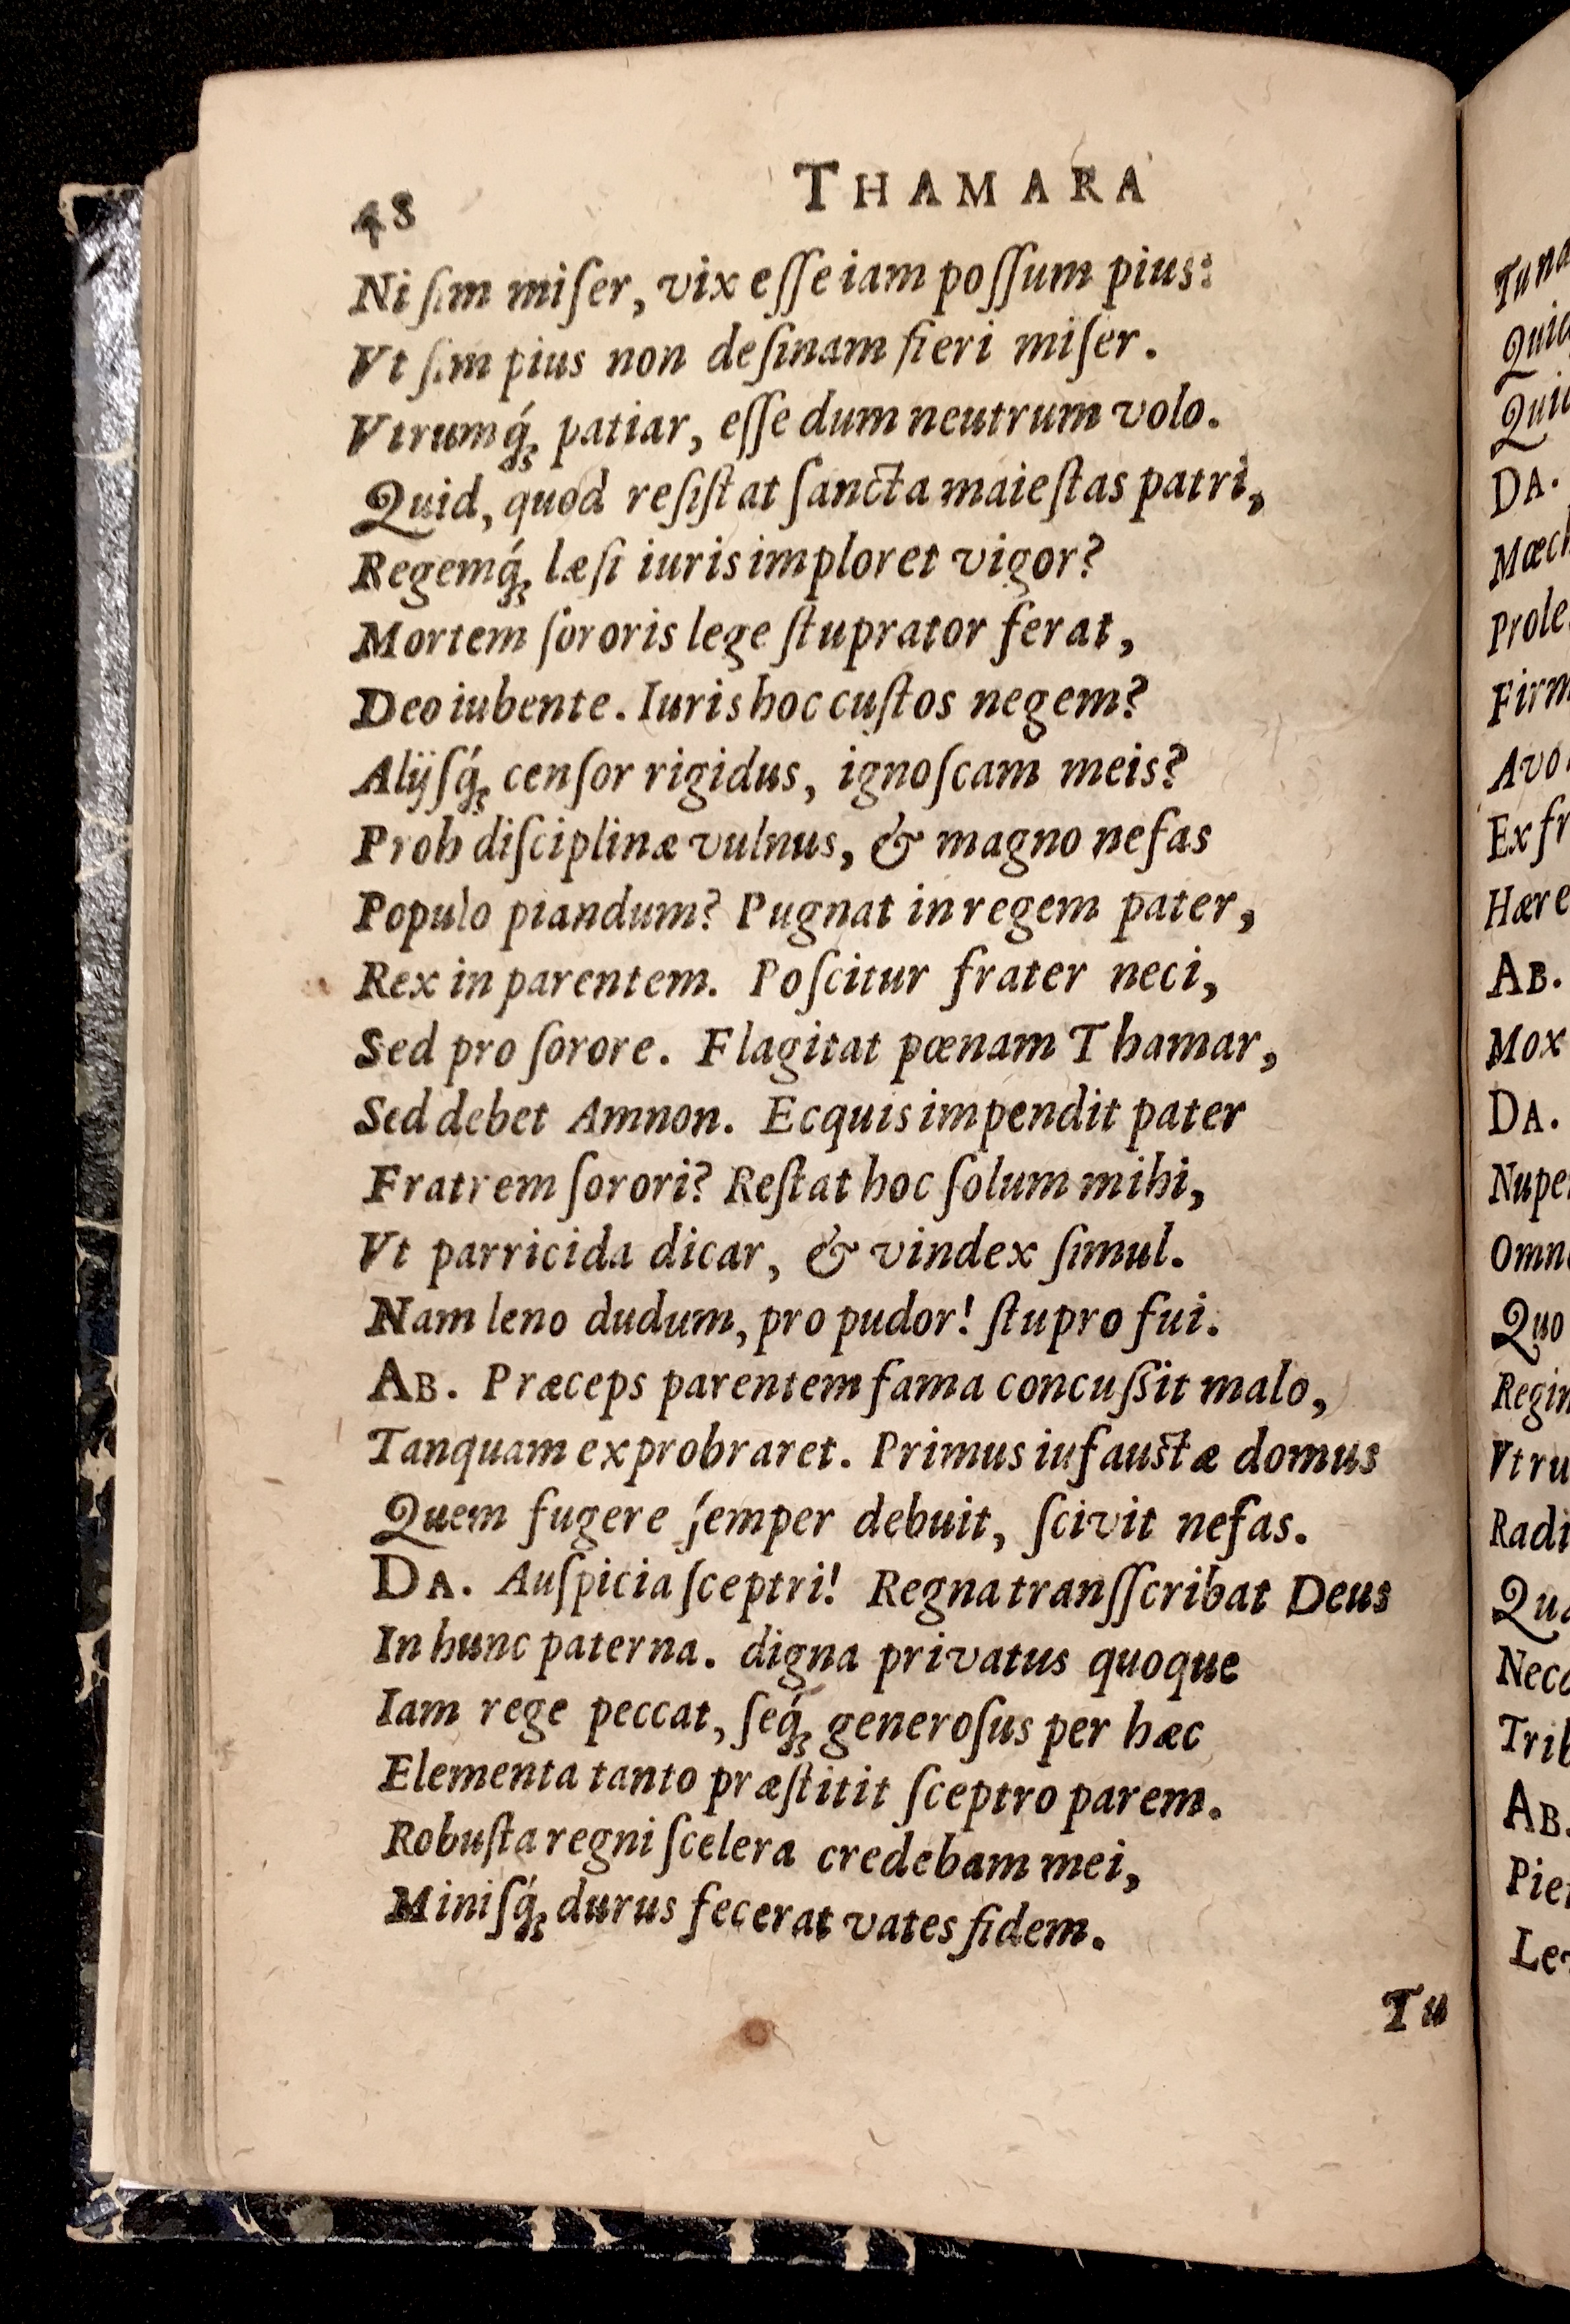 48 THAMARA
Ni ſim miſer, vix eſſe iam poſſum pius:
Vt ſim pius non deſinam fieri miſer.
Vtrumq́; patiar, eſſe dum neutrum volo.
Quid, quod reſiſtat ſancta maieſtas patri,
Regemq́; læſi iuris imploret vigor?
Mortem ſororis lege ſtuprator ferat,
Deo iubente. Iuris hoc cuſtos negem?
Alijſq́; cenſor rigidus, ignoſcam meis?
Proh diſciplinæ vulnus, & magno nefas
Populo piandum? Pugnat in regem pater,
Rex in parentem. Poſcitur frater neci,
Sed pro ſorore. Flagitat pœnam Thamar,
Sed debet Amnon. Ecquis impendit pater
Fratrem ſorori? Reſtat hoc ſolum mihi,
Vt parricida dicar, & vindex ſimul.
Nam leno dudum, pro pudor! ſtupro fui.
AB. Præceps parentem fama concuſſit malo,
Tanquam exprobraret. Primus iufauſtæ domus
Quem fugere ſemper debuit, ſcivit nefas.
DA. Auſpicia ſceptri! Regna tranſſcribat Deus
In hunc paterna. digna privatus quoque
Iam rege peccat, ſeq́; generoſus per hæc
Elementa tanto præſtitit ſceptro parem.
Robuſta regni ſcelera credebam mei,
Miniſq́; durus fecerat vates fidem.
Tu
DA.
AB.
Mox
DA.
Quo
AB.